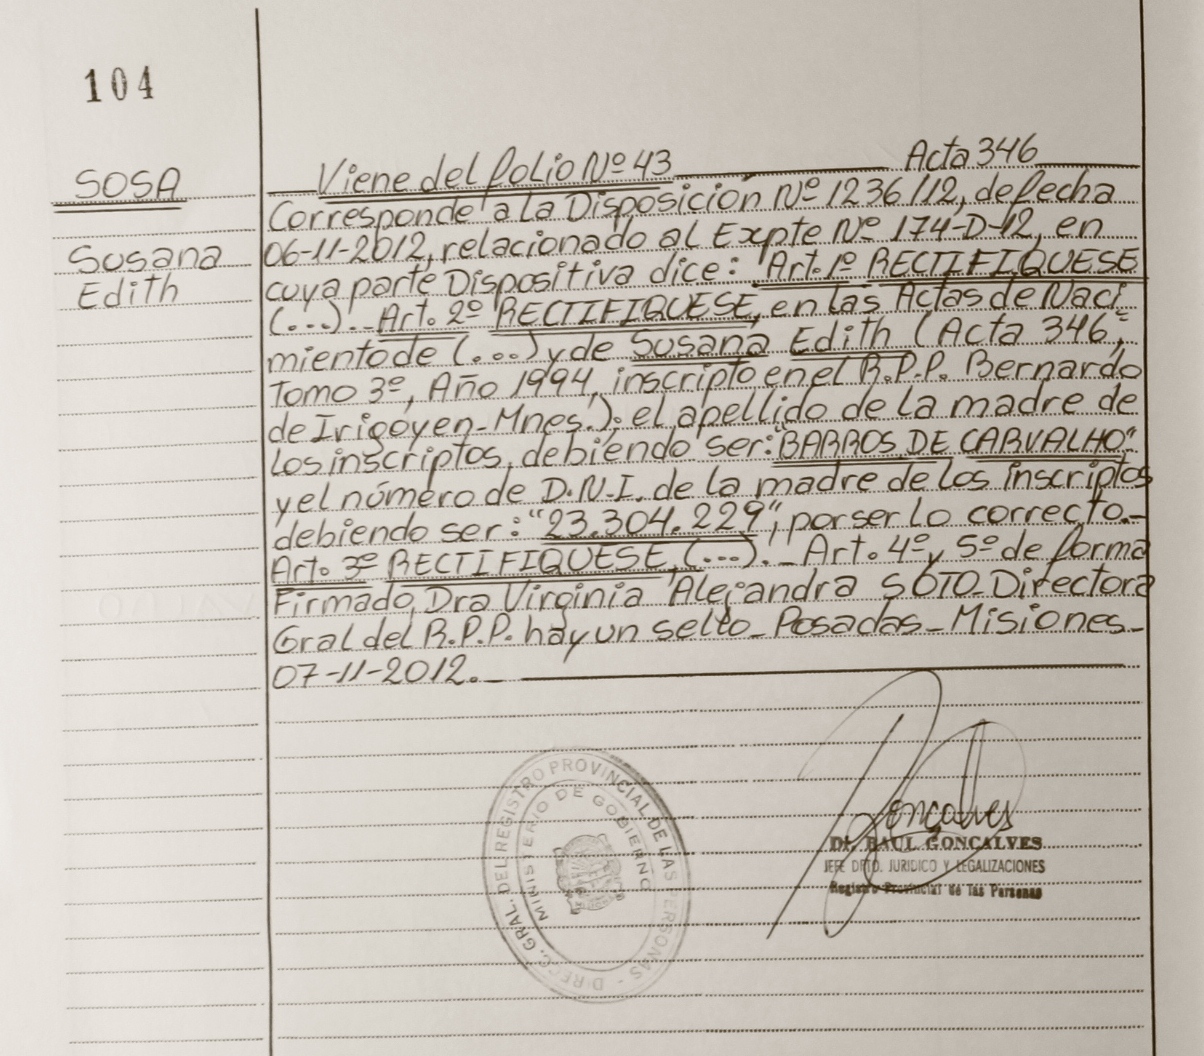 104
SOSA
Susana
Edith
Viene del folio Nº 43 Acta 346
Corresponde a la Disposición Nº 1236/12, de fecha
06-11-2012, relacionado al Expte Nº 174-D-12, en
cuya parte Dispositiva dice: "Art. 1º RECTIFIQUESE
(...)._ Art. 2º RECTIFIQUESE, en las Actas de Naci=
miento de (...) y de Susana Edith (Acta 346,
Tomo 3º, Año 1994, inscripto en el R.P.P. Bernardo
de Irigoyen-Mnes.): el apellido de la madre de
los inscriptos, debiendo ser: "BARROS DE CARVALHO",
y el número de D.N.I. de la madre de los inscriptos
debiendo ser: "23.304.229", por ser lo correcto._
Art. 3º RECTIFIQUESE, (...)._ Art. 4º y 5º de forma
Firmado, Dra Virginia Alejandra SOTO_Directora
Gral del R.P.P. hay un sello_ Posadas_ Misiones_
07-11-2012._
DIRECC. GRAL. DEL REGISTRO PROVINCIAL DE LAS PERSONAS -
MINISTERIO DE GOBIERNO
Goncalves
Dr. RAUL GONÇALVES
JEFE DPTO. JURIDICO Y LEGALIZACIONES
Registro Provincial de las Personas